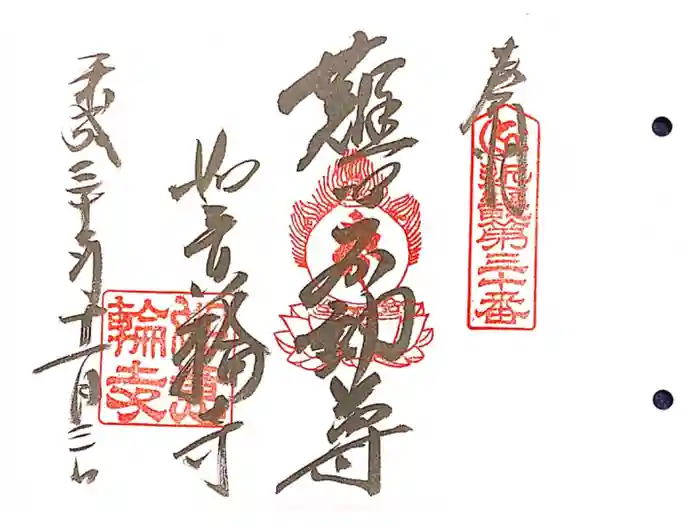 奉拝
近畿第三十番
難切不動尊
如意輪寺
如意輪寺
平成三十年十一月三日